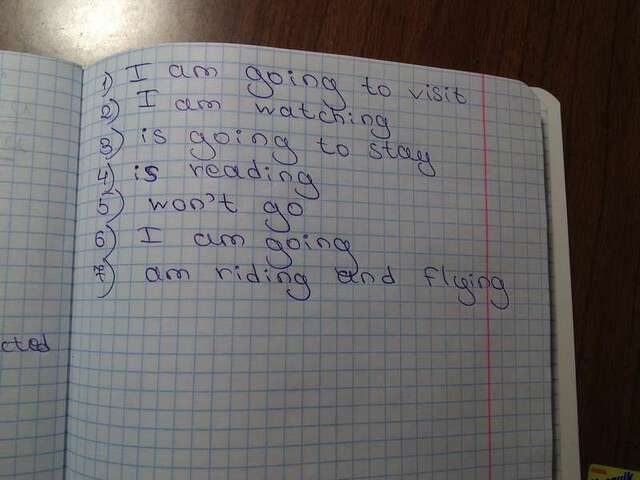 1) I am going to visit
2) I am watching
3) is going to stay
4) is reading
5) won't go
6) I am going
7) am riding and flying
cted